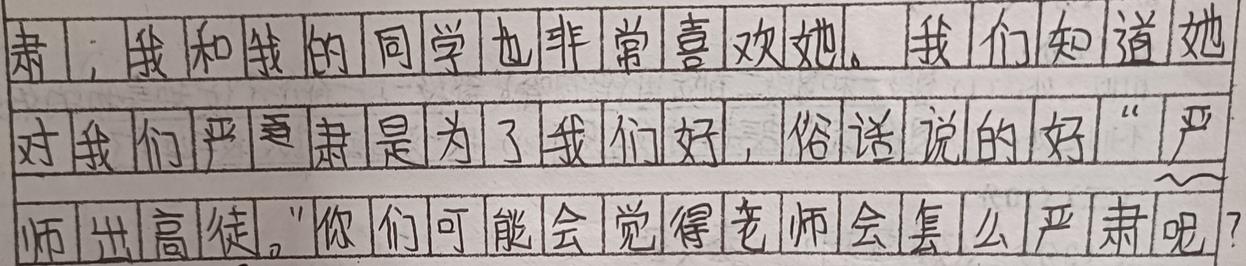 肃，我和我的同学也非常喜欢她。我们知道她
对我们严肃是为了我们好，俗话说的好“严
师出高徒。”你们可能会觉得老师会怎么严肃呢？